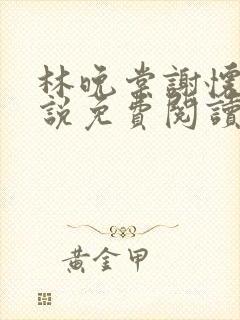 林晚棠謝懷
說免費閱讀
黃金甲